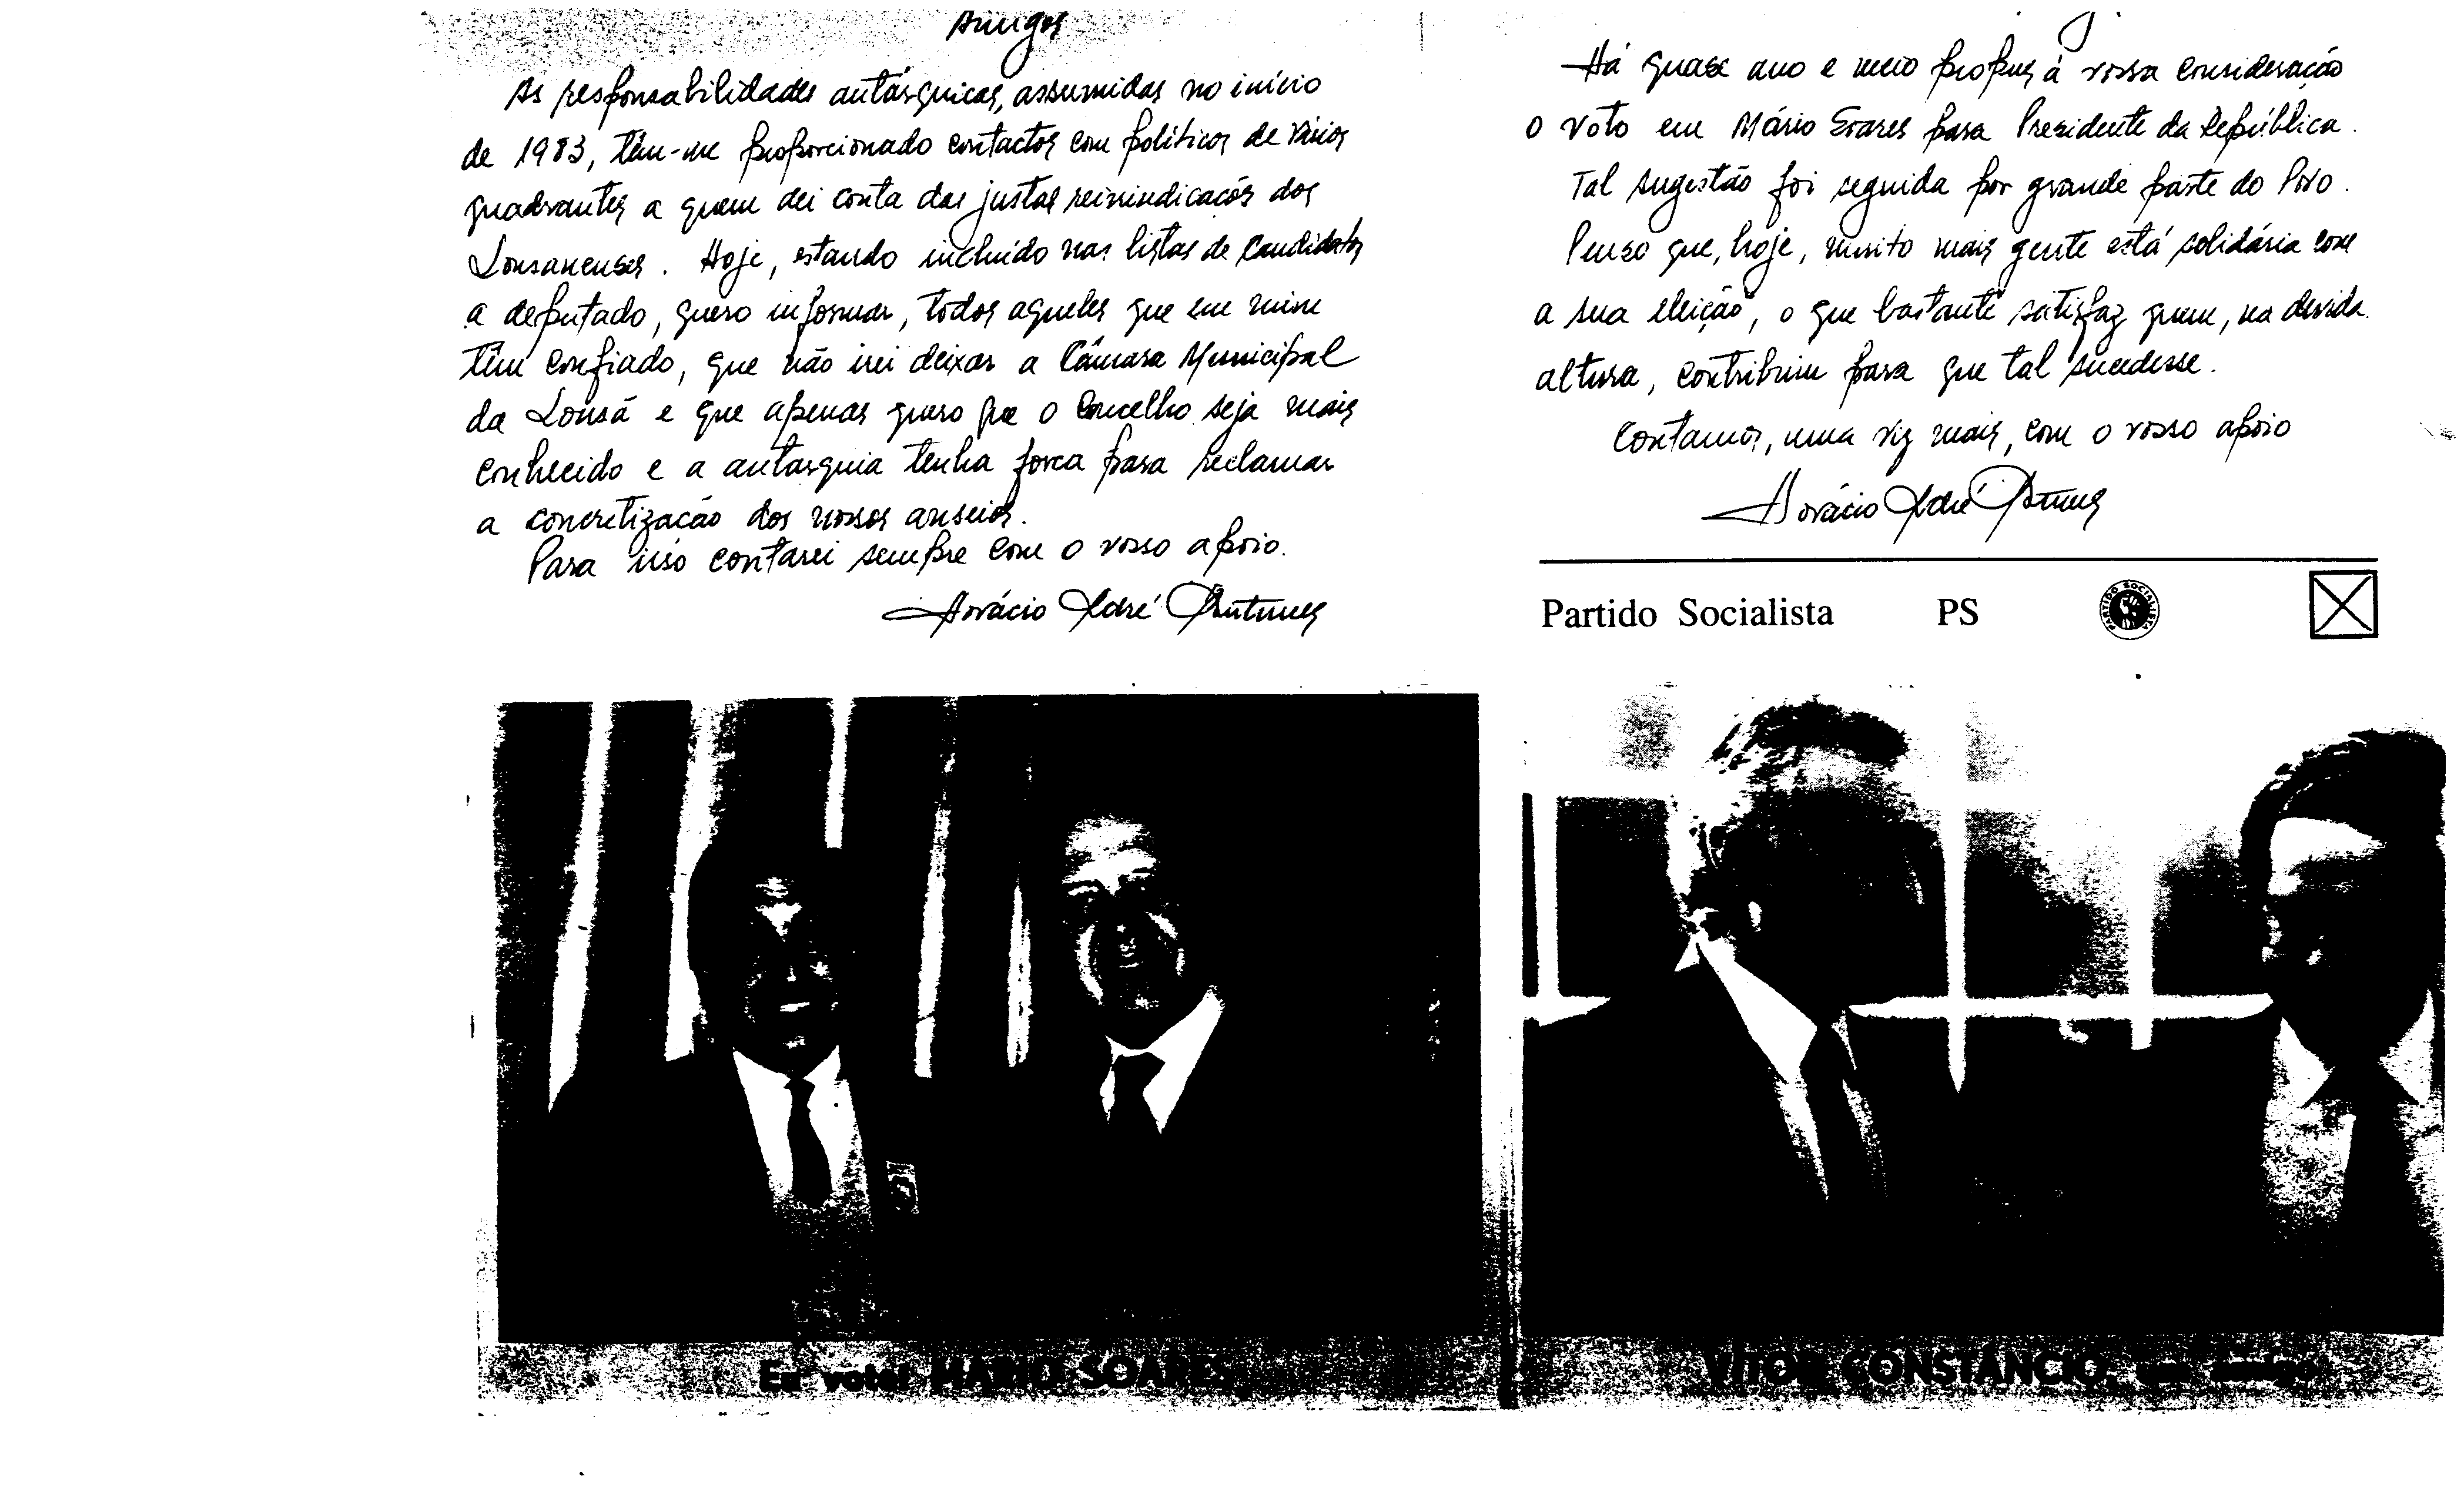 Amigos
As responsabilidades autárquicas, assumidas no início
de 1983, têm-me proporcionado contactos com políticos de vários
quadrantes a quem dei conta das justas reivindicações dos
Lousanenses. Hoje, estando incluído nas listas de candidatos
a deputado, quero informar, todos aqueles que em mim
têm confiado, que não irei deixar a Câmara Municipal
da Lousã e que apenas quero que o Concelho seja mais
conhecido e a autarquia tenha força para reclamar
a concretização dos nossos anseios.
Para isso contarei sempre com o vosso apoio.
Horácio André Antunes
Há quase ano e meio propus à vossa consideração
o voto em Mário Soares para Presidente da República.
Tal sugestão foi seguida por grande parte do Povo.
Penso que, hoje, muito mais gente está solidária com
a sua eleição, o que bastante satisfaz quem, na devida
altura, contribuiu para que tal sucedesse.
Contamos, uma vez mais, com o vosso apoio
Horácio André Antunes
Partido Socialista PS
PARTIDO SOCIALISTA
Eu votei MÁRIO SOARES
VITOR CONSTÂNCIO, um amigo